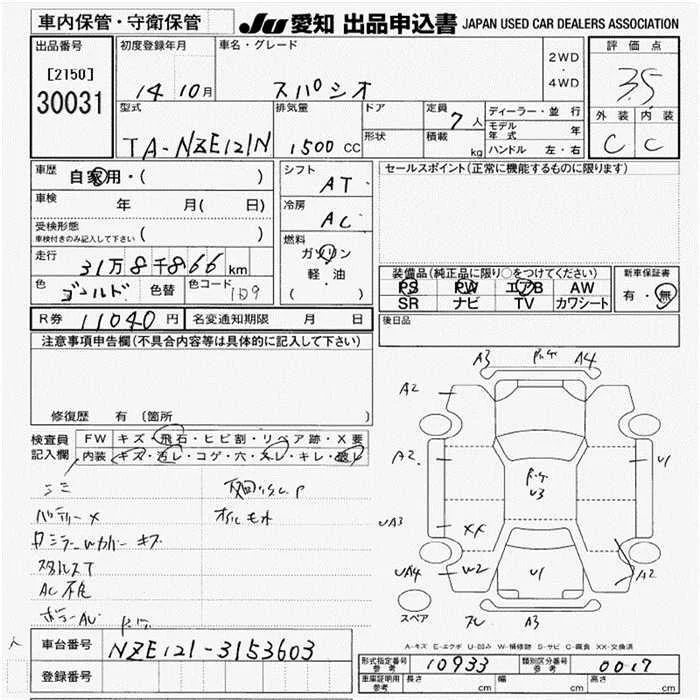 車内保管・守衛保管
JU 愛知 出品申込書 JAPAN USED CAR DEALERS ASSOCIATION
出品番号
[2150]
30031
初度登録年月
14 10月
車名・グレード
スパシオ
2WD
・
4WD
評価点
3.5
外装 内装
C C
型式
TA-NZE121N
排気量
1500 CC
ドア
形状
定員
7人
積載
kg
ディーラー・並行
モデル年式 年
ハンドル 左・右
車歴
自家用・( )
車検
年 月( 日)
受検形態
車検付きのみ記入して下さい ( )
走行
31万8千866 km
色
ゴールド
色替
色コード
シフト
AT
冷房
AC
燃料
ガソリン
軽油
( )
セールスポイント(正常に機能するものに限ります)
装備品(純正品に限り○をつけてください)
PS PW エアB AW
SR ナビ TV カワシート
新車保証書
有・無
R券 11040円
名変通知期限 月 日
後日品
注意事項申告欄(不具合内容等は具体的に記入して下さい)
修復歴 有 〔箇所 〕
検査員記入欄
FW キズ・飛石・ヒビ割・リペア跡・X要
内装 キズ・汚レ・コゲ・穴・スレ・キレ・破レ
バッテリーX
AC不良
A3 A4
A2
A2
U3
U1
UA3
XX
UA4
W2
U1
A2
A3
スペア
A-キズ E-エクボ U-凹み W-補修跡 S-サビ C-腐食 XX-交換済
車台番号
NZE121-3153603
登録番号
形式指定番号 参考 10933
類別区分番号 参考 0017
車庫証明用 参考
長さ cm
幅 cm
高さ cm